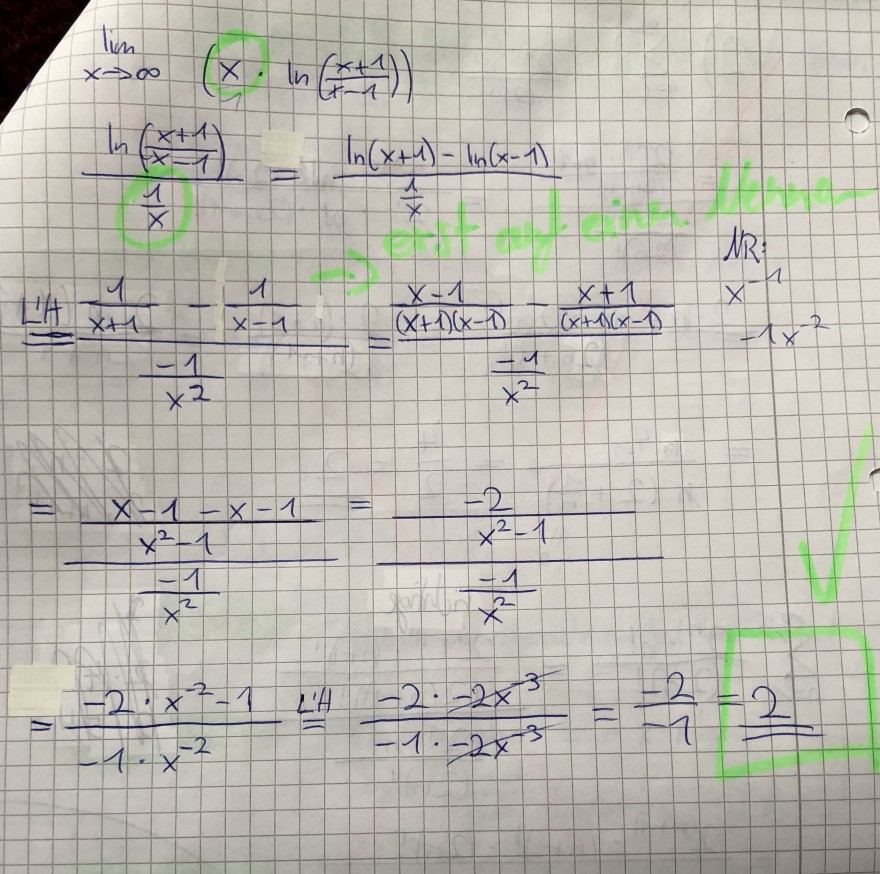 lim
x→∞ (x · ln((x+1)/(x-1)))
ln((x+1)/(x-1)) / (1/x) = (ln(x+1) - ln(x-1)) / (1/x)
→ erst auf einen Nenner
NR:
x^-1
-1x^-2
L'H = (1/(x+1) - 1/(x-1)) / (-1/x^2) = ((x-1)/((x+1)(x-1)) - (x+1)/((x+1)(x-1))) / (-1/x^2)
= ((x-1-x-1)/(x^2-1)) / (-1/x^2) = (-2/(x^2-1)) / (-1/x^2)
= (-2 · x^-2 - 1) / (-1 · x^-2) L'H = (-2 · -2x^-3) / (-1 · -2x^-3) = -2/-1 = 2